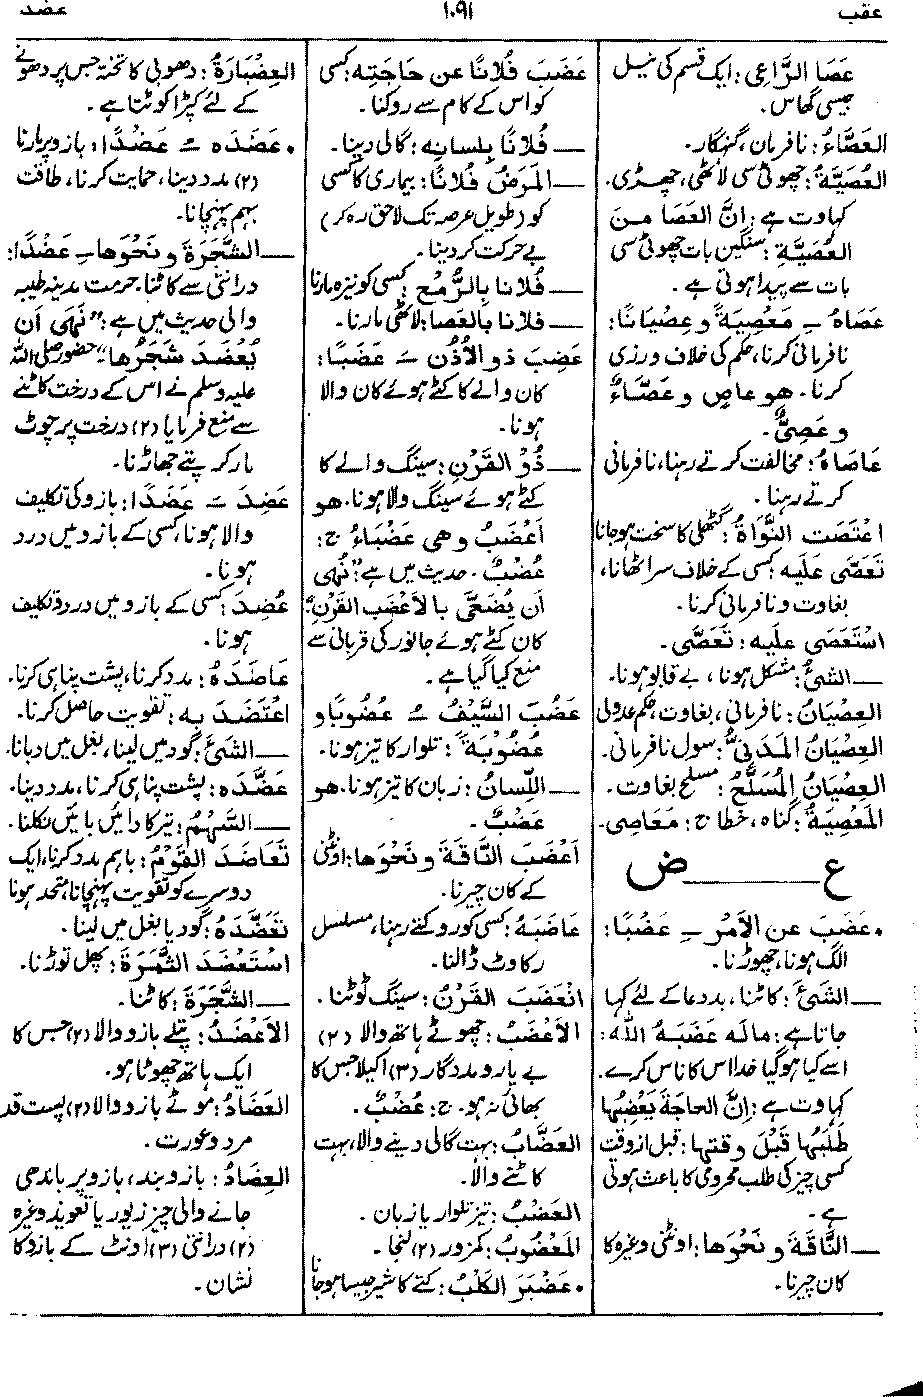 عقب
۱۰۹۱
عضد
عَصَا الرَّاعِی: ایک قسم کی نیل
جیسی گھاس۔
العَصَّاءُ: نافرمان، گنہگار۔
العُصَيَّةُ: چھوٹی سی لاٹھی، چھڑی۔
کہاوت ہے: اِنَّ العَصَا مِنَ
العُصَيَّةِ: سنگین بات چھوٹی سی
بات سے پیدا ہوتی ہے۔
عَصَاهُ ـِ مَعْصِيَةً وعِصْيَانًا:
نافرمانی کرنا، حکم کی خلاف ورزی
کرنا۔ هو عاصٍ وعَصَّاءُ
وعَصِیٌّ۔
عَاصَاهُ: مخالفت کرتے رہنا، نافرمانی
کرتے رہنا۔
اعْتَصَتِ النَّوَاةُ: گٹھلی کا سخت ہوجانا
تَعَصَّی عَلَيه: کسی کے خلاف سر اٹھانا،
بغاوت ونافرمانی کرنا۔
اسْتَعْصَی علیه: تَعَصَّی۔
ــ الشَّیْءُ: مشکل ہونا، بے قابو ہونا۔
العِصْيَانُ: نافرمانی، بغاوت، حکم عدولی
العِصْيَانُ المَدَنِیُّ: سول نافرمانی۔
العِصْيَانُ المُسَلَّحُ: مسلح بغاوت۔
المَعْصِيَةُ: گناہ، خطا ج: مَعَاصِی۔
ع ـــــــ ض
• عَضَبَ عن الأمْرِ ـِ عَضْبًا:
الگ ہونا، چھوڑنا۔
ــ الشَّیْءَ: کاٹنا، بددعا کے لئے کہا
جاتا ہے: مالَه عَضَبَهُ اللهُ:
اسے کیا ہوگیا خدا اس کا ناس کرے۔
کہاوت ہے: اِنَّ الحاجَةَ يَعْضِبُها
طَلَبُها قَبْلَ وقتِها: قبل از وقت
کسی چیز کی طلب محرومی کا باعث ہوتی
ہے۔
ــ النَّاقَةَ ونَحْوَها: اونٹنی وغیرہ کا
کان چیرنا۔
عَضَبَ فُلَانًا عن حَاجَتِه: کسی
کو اس کے کام سے روکنا۔
ــ فُلَانًا بِلِسانِه: گالی دینا۔
ــ المَرَضُ فُلَانًا: بیماری کا کسی
کو (طویل عرصہ تک لاحق رہ کر)
بے حرکت کردینا۔
ــ فُلَانا بِالرُّمْحِ: کسی کو نیزہ مارنا
ــ فلانا بالعَصا: لاٹھی مارنا۔
عَضِبَ ذو الأُذُنِ ـَ عَضَبًا:
کان والے کا کٹے ہوئے کان والا
ہونا۔
ــ ذُو القَرْنِ: سینگ والے کا
کٹے ہوئے سینگ والا ہونا۔ هو
اَعْضَبُ وهی عَضْبَاءُ ج:
عُضْبٌ۔ حدیث میں ہے: ”نُهِیَ
أن يُضَحَّی بالأعْضَبِ القَرْنِ“:
کان کٹے ہوئے جانور کی قربانی سے
منع کیا گیا ہے۔
عَضُبَ السَّيْفُ ـُ عُضُوبًا و
عُضُوبَةً: تلوار کا تیز ہونا۔
ــ اللِّسانُ: زبان کا تیز ہونا۔ هو
عَضْبٌ۔
اَعْضَبَ النَّاقَةَ ونَحْوَها: اونٹنی
کے کان چیرنا۔
عَاضَبَهُ: کسی کو روکتے رہنا، مسلسل
رکاوٹ ڈالنا۔
انْعَضَبَ القَرْنُ: سینگ ٹوٹنا۔
الأعْضَبُ: چھوٹے ہاتھ والا (۲)
بے یار ومددگار (۳) اکیلا جس کا
بھائی نہ ہو۔ ج: عُضْبٌ۔
العَضَّابُ: بہت گالی دینے والا، بہت
کاٹنے والا۔
العَضْبُ: تیز تلوار یا زبان۔
المَعْضُوبُ: کمزور (۲) لنجا۔
• عَضْبَرَ الكَلْبُ: کتے کا شیر جیسا ہوجانا
العِضْبَارَةُ: دھوبی کا تختہ جس پر دھونے
کے لئے کپڑا کوٹتا ہے۔
• عَضَدَه ـُ عَضْدًا: بازو پر مارنا
(۲) مدد دینا، حمایت کرنا، طاقت
بہم پہنچانا۔
ــ الشَّجَرَةَ ونَحْوَها ـِ عَضْدًا:
درانتی سے کاٹنا۔ حرمت مدینہ طیبہ
والی حدیث میں ہے: ”نَهَی أن
يُعْضَدَ شَجَرُها“ حضور صلی اللہ
علیہ وسلم نے اس کے درخت کاٹنے
سے منع فرمایا (۲) درخت پر چوٹ
مار کر پتے جھاڑنا۔
عَضِدَ ـَ عَضَدًا: بازو کی تکلیف
والا ہونا، کسی کے بازو میں درد
ہونا۔
عُضِدَ: کسی کے بازو میں درد و تکلیف
ہونا۔
عَاضَدَهُ: مدد کرنا، پشت پناہی کرنا۔
اعْتَضَدَ بِه: تقویت حاصل کرنا۔
ــ الشَّیْءَ: گود میں لینا، بغل میں دبانا۔
عَضَّدَه: پشت پناہی کرنا، مدد دینا۔
ــ السَّهْمُ: تیر کا دائیں بائیں نکلنا۔
تَعَاضَدَ القَوْمُ: باہم مدد کرنا، ایک
دوسرے کو تقویت پہنچانا، متحد ہونا
تَعَضَّدَهُ: گود یا بغل میں لینا۔
اسْتَعْضَدَ الثَّمَرَةَ: پھل توڑنا۔
ــ الشَّجَرَةَ: کاٹنا۔
الأعْضَدُ: پتلے بازو والا (۲) جس کا
ایک ہاتھ چھوٹا ہو۔
العَضَادُ: موٹے بازو والا (۲) پست قد
مرد وعورت۔
العِضَادُ: بازوبند، بازو پر باندھی
جانے والی چیز زیور یا تعویذ وغیرہ
(۲) درانتی (۳) اونٹ کے بازو کا
نشان۔